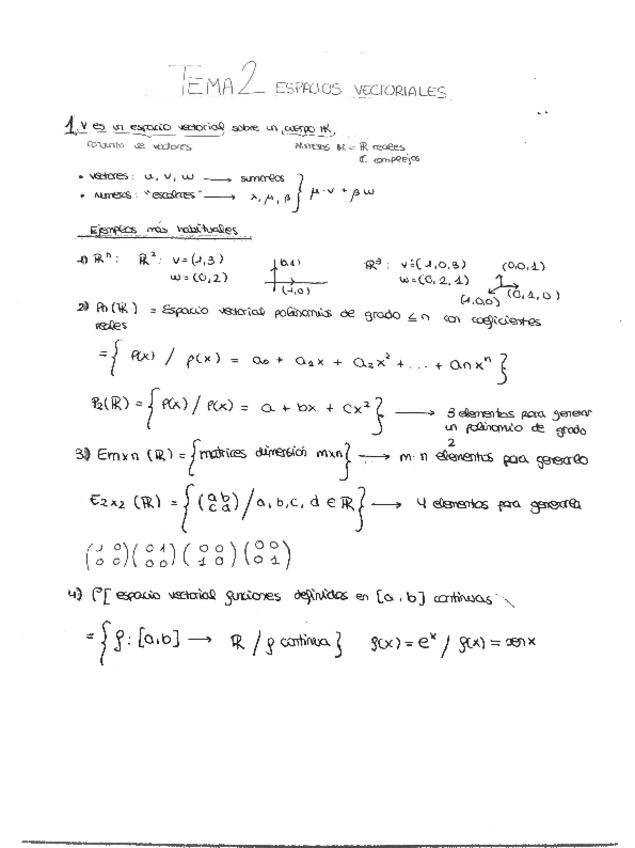 TEMA 2 ESPACIOS VECTORIALES
1. V es un espacio vectorial sobre un cuerpo K,
conjunto de vectores Números K = R reales
C complejos
• vectores: u, v, w → sumarlos
• números: "escalares" → λ, μ, β } μ·v + βw
Ejemplos más habituales
1) Rⁿ: R²: v=(1,3) (0,1) R³: v=(1,0,3) (0,0,1)
w=(0,2) (1,0) w=(0,2,1) (1,0,0) (0,1,0)
2) Pn(R) = Espacio vectorial polinomios de grado ≤ n con coeficientes
reales
= { P(x) / p(x) = a₀ + a₁x + a₂x² + ... + anxⁿ }
P₂(R) = { P(x) / P(x) = a + bx + cx² } → 3 elementos para generar
un polinomio de grado
2
3) Emxn (R) = { matrices dimensión mxn } → m·n elementos para generarlo
E2x2 (R) = { (a b / c d) / a, b, c, d ∈ R } → 4 elementos para generarla
(1 0 / 0 0) (0 1 / 0 0) (0 0 / 1 0) (0 0 / 0 1)
4) espacio vectorial funciones definidas en [a, b] continuas
= { f: [a,b] → R / f continua } f(x) = eˣ / f(x) = sen x